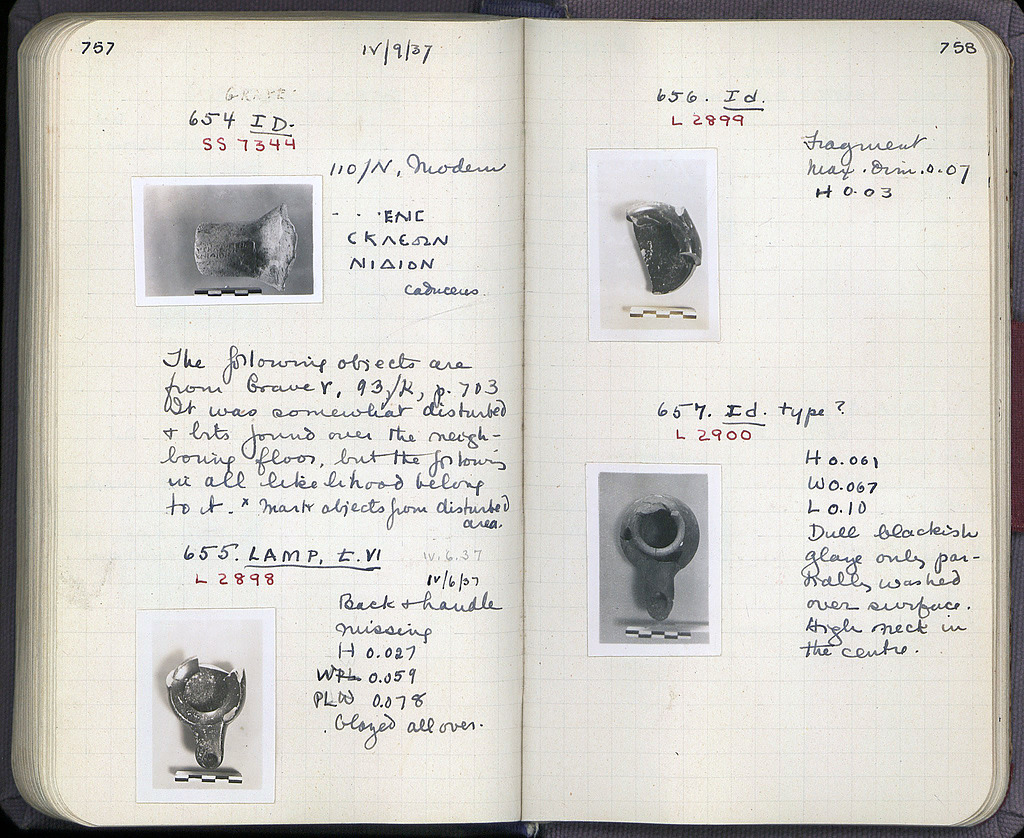 757
IV/9/37
GRAVE
654 ID.
SS 7344
110/N, Modern
- - . ENC
CΚΛΕΩΝ
ΝΙΔΙΟΝ
caduceus.
The following objects are
from Grave V, 93/K, p. 703
It was somewhat disturbed
+ bits found over the neigh-
boring floor, but the following
in all likelihood belong
to it. * Mark objects from disturbed
area.
655. LAMP, t. VI
IV.6.37
L 2898
IV/6/37
Back + handle
missing
H 0.027
0.059
PLW 0.078
Glazed all over.
758
656. Id.
L 2899
Fragment
Max. Dim. 0.07
H 0.03
657. Id. type?
L 2900
H 0.061
W 0.067
L 0.10
Dull blackish
glaze only par-
tially washed
over surface.
High neck in
the centre.